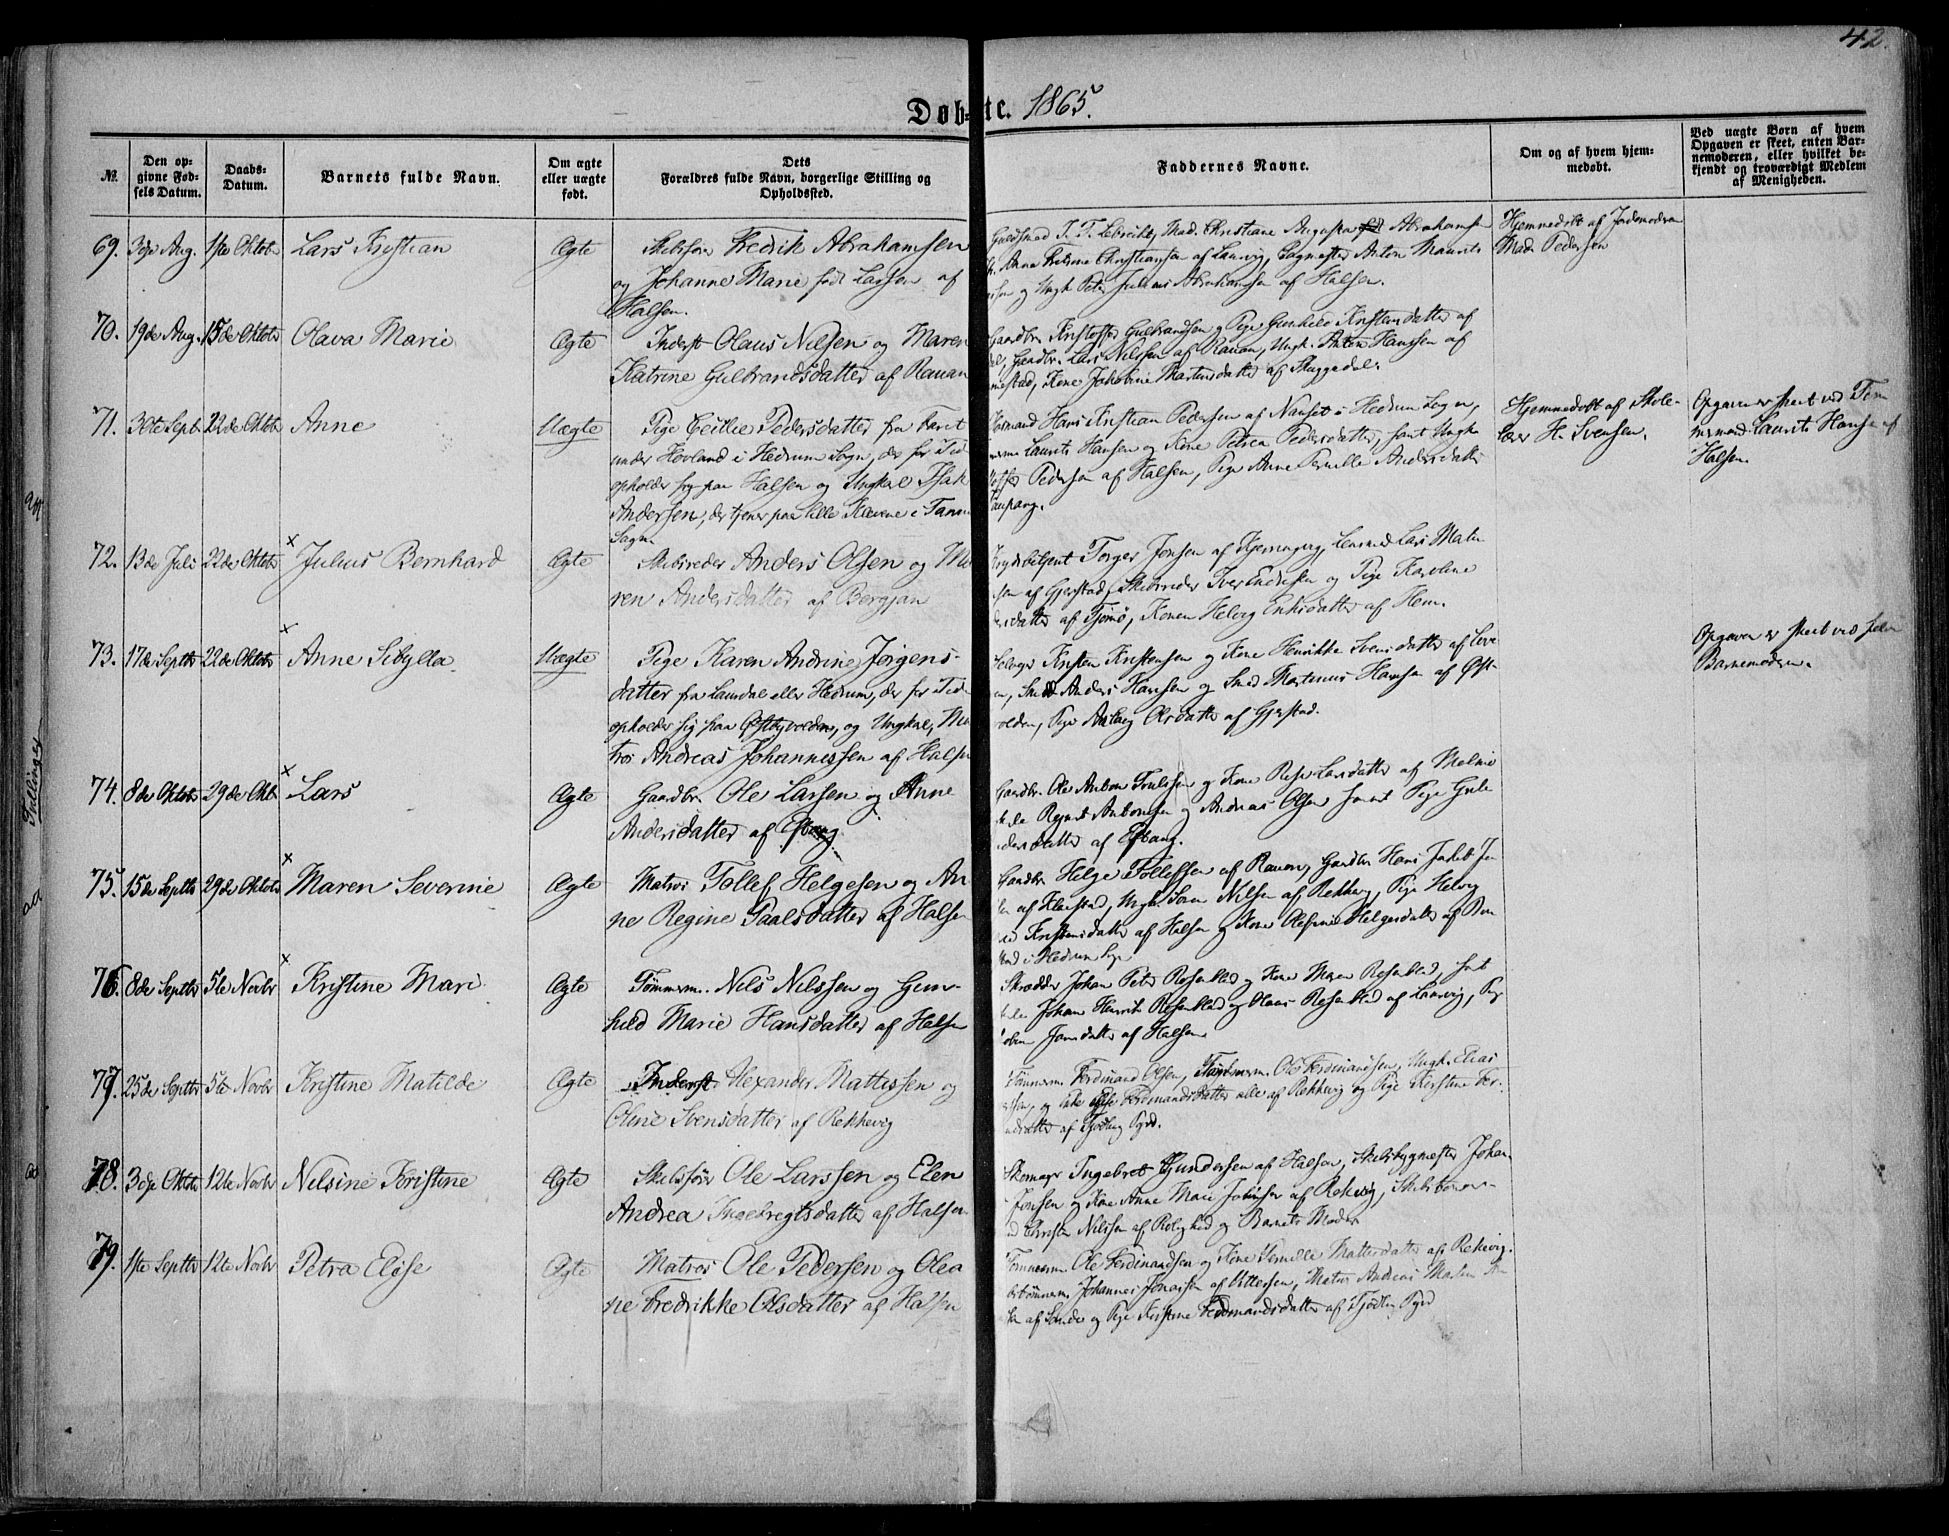 42.
Døbte. 1865.
№.
Den opgivne Fødsels Datum.
Daabs-Datum.
Barnets fulde Navn.
Om ægte eller uægte født.
Dets Forældres fulde Navn, borgerlige Stilling og Opholdssted.
Faddernes Navne.
Om og af hvem hjemmedøbt.
Ved uægte Børn af hvem Opgaven er skeet, enten Barnemoderen, eller hvilket bekjendt og troværdigt Medlem af Menigheden.
69. 3die Aug. 1ste Oktobr Lars Kristian Ægte
Skibsfører Fredrik Abrahamsen
og Johanne Marie født Larsen af
Halsen.
Guldsmed J. F. Mad. Christiane Augusta Abrahamsen
Anna Christiansen af Laurvig, Anton Maurits
og Ungk. Peter Julius Abrahamsen af Halsen.
Hjemmedøbt af Jordemoderen
Mad. Pedersen
70. 19de Aug. 15de Oktobr Olava Marie Ægte
Inderst Olaus Nilsen og Maren
Katrine Gulbrandsdatter af Rauan
Gaardbr. Kristoffer Gulbrandsen og Pige Gunhild Kristensdatter af
Gaardbr. Lars Nilssen af Rauan, Ungk. Anton Hanssen af
Kone Jakobine Martinsdatter af Skaggedal.
71. 30te Sept. 22de Oktobr Anne Uægte
Pige Cecilie Pedersdatter fra Faret
under Hovland i Hedrum Sogn, der for Tid
opholder sig paa Halsen og Ungkarl Isak
Andersen, der tjener paa lille Klevene i Tanum
Sogn.
Hans Kristian Pedersen af Nanset i Hedrum Sogn,
Laurits Hansen og Kone Petrea Pedersdatter, samt Ungk.
Pedersen af Halsen, Pige Anne Pernille Andersdatter
Kaupang.
Hjemmedøbt af Skole-
lærer H. Svensen.
Opgaven er skeet ved Tøm
mermand Laurits Hansen af
Halsen.
72. 13de Juli 22de Oktobr × Julius Bernhard Ægte
Skibsreder Anders Olsen og Ma
ren Andersdatter af Bergjan
Torger Jonsen af Kjerringvig, Lensmd Lars Math
sen af Gjerstad, Skibsreder Iver Endresen og Pige Karoline
datter af Tjømø, Konen Helvig Eriksdatter af Hem.
73. 17de Septbr 22de Oktobr × Anne Sibylla Uægte
Pige Karen Andrine Jørgens-
datter fra Laurdal eller Hedrum, der for Tid
opholder sig paa Østbyvolden, og Ungkarl, Ma
tros Andreas Johannessen af Halsen
Kristen Kristensen og Kone Henrikke Svensdatter af
Smed Anders Hansen og Smed Martinus Hansen af Øst-
volden, Pige Aslaug Olsdatter af Gjerstad.
Opgaven er skeet ved selve
Barnemoderen.
74. 8de Oktobr 29de Oktbr × Lars Ægte
Gaardbr. Ole Larsen og Anne
Andersdatter af Østvang
Gaardbr. Ole Anton Trulssen og Kone Larsdatter af Melnæ
Antonsen og Andreas Olsen samt Pige
datter af
75. 15de Septbr 29de Oktobr × Maren Severine Ægte
Matros Tollef Helgesen og An
ne Regine Paalsdatter af Halsen
Gaardbr. Helge Tollefssen af Rauan, Gaardbr. Hans Jakob
af Klaastad, Ungk. Søren Nilsen af Rekkevig, Pige Helvig
Kristensdatter af Halsen og Kone Olesine Helgesdatter af
i Hedrum Sogn
76. 8de Septbr 5te Novbr × Kristine Mari Ægte
Tømmerm. Nils Nilssen og Gun-
hild Marie Hansdatter af Halsen
Skrædder Johan Peter Rosenblad og Kone Maren Rosenblad, samt
Johan Henrik Rosenblad og Olaus Rosenblad af Laurvig, Pige
Jonsdatter af Halsen
77. 25de Septbr 5te Novbr Kristine Matilde Ægte
Inderst Alexander Mattissen og
Oline Svensdatter af Rekkevig
Tømmerm. Ferdinand Olsen, Tømmerm. Ole Ferdinandsen, Ungk. Elias
og Ferdinandsdatter alle af Rekkevig og Pige Kirstine Fer-
datter af Tjødling Pgrd.
78. 3die Oktbr 12te Novbr Nilsine Kristine Ægte
Skibsfører Ole Larssen og Elen
Andrea Ingebregtsdatter af Halsen
Skomager Ingebret Gundersen af Halsen, Skibsbygmester Johan
Jonsen og Kone Anne Mari af Rekevig, Skibstømmer-
Christen Nilssen af Rolighed og Barnets Moder
79. 1ste Septbr 12te Novbr Petra Elise Ægte
Matros Ole Pedersen og Olea
ne Fredrikke Olsdatter af Halsen
Tømmerm. Ole Ferdinandsen og Kone Pernille Mattisdatter af Rekevig.
Johannes Jonassen af Vittersen, Matros Andreas Martin
af Søndre og Pige Kirstine Ferdinandsdatter af Tjødling Pgrd
Tjølling